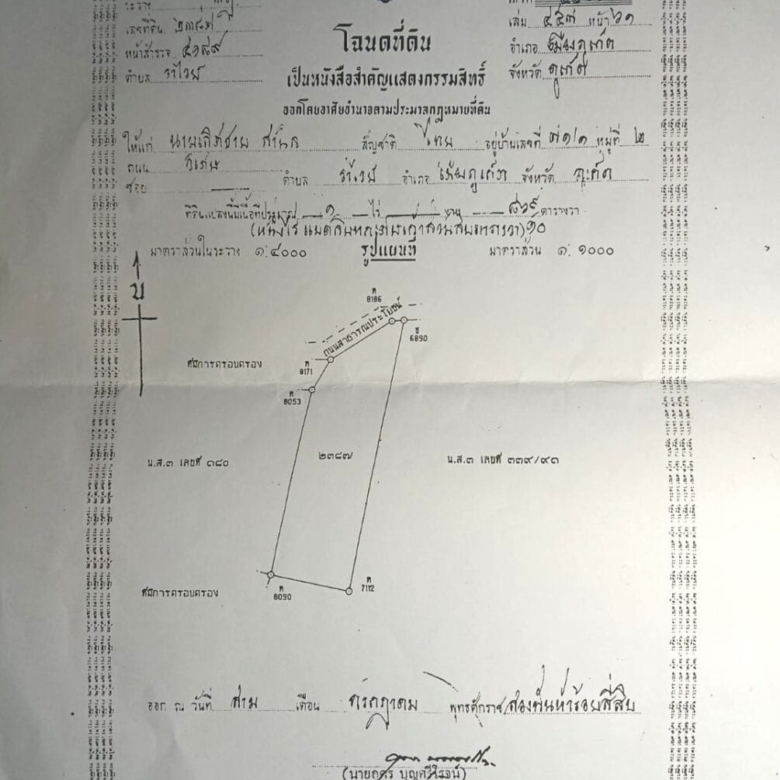 เลขที่ดิน ๒๓๘๗
เล่ม ๔๕๗ หน้า ๖๑
หน้าสำรวจ ๔๑๙๙
อำเภอ เมืองภูเก็ต
ตำบล ราไวย์
จังหวัด ภูเก็ต
โฉนดที่ดิน
เป็นหนังสือสำคัญแสดงกรรมสิทธิ์
ออกโดยอาศัยอำนาจตามประมวลกฎหมายที่ดิน
ให้แก่ นาย สัญชาติ ไทย อยู่บ้านเลขที่ หมู่ที่ ๒
ถนน วิเศษ
ซอย ตำบล ราไวย์ อำเภอ เมืองภูเก็ต จังหวัด ภูเก็ต
ที่ดินแปลงนี้มีเนื้อที่ประมาณ ๑ ไร่ งาน ตารางวา
มาตราส่วนในระวาง ๑:๔๐๐๐ รูปแผนที่ มาตราส่วน ๑:๑๐๐๐
น
ต
8186
ถนนสาธารณประโยชน์
ซ
6890
ที่มีการครอบครอง
ต
8171
ต
8053
๒๓๘๗
น.ส.๓ เลขที่ ๑๘๐
น.ส.๓ เลขที่ ๓๓๙/๙๓
ที่มีการครอบครอง
ต
8090
ต
7112
ออก ณ วันที่ สาม เดือน กรกฎาคม พุทธศักราช สองพันห้าร้อยสี่สิบ